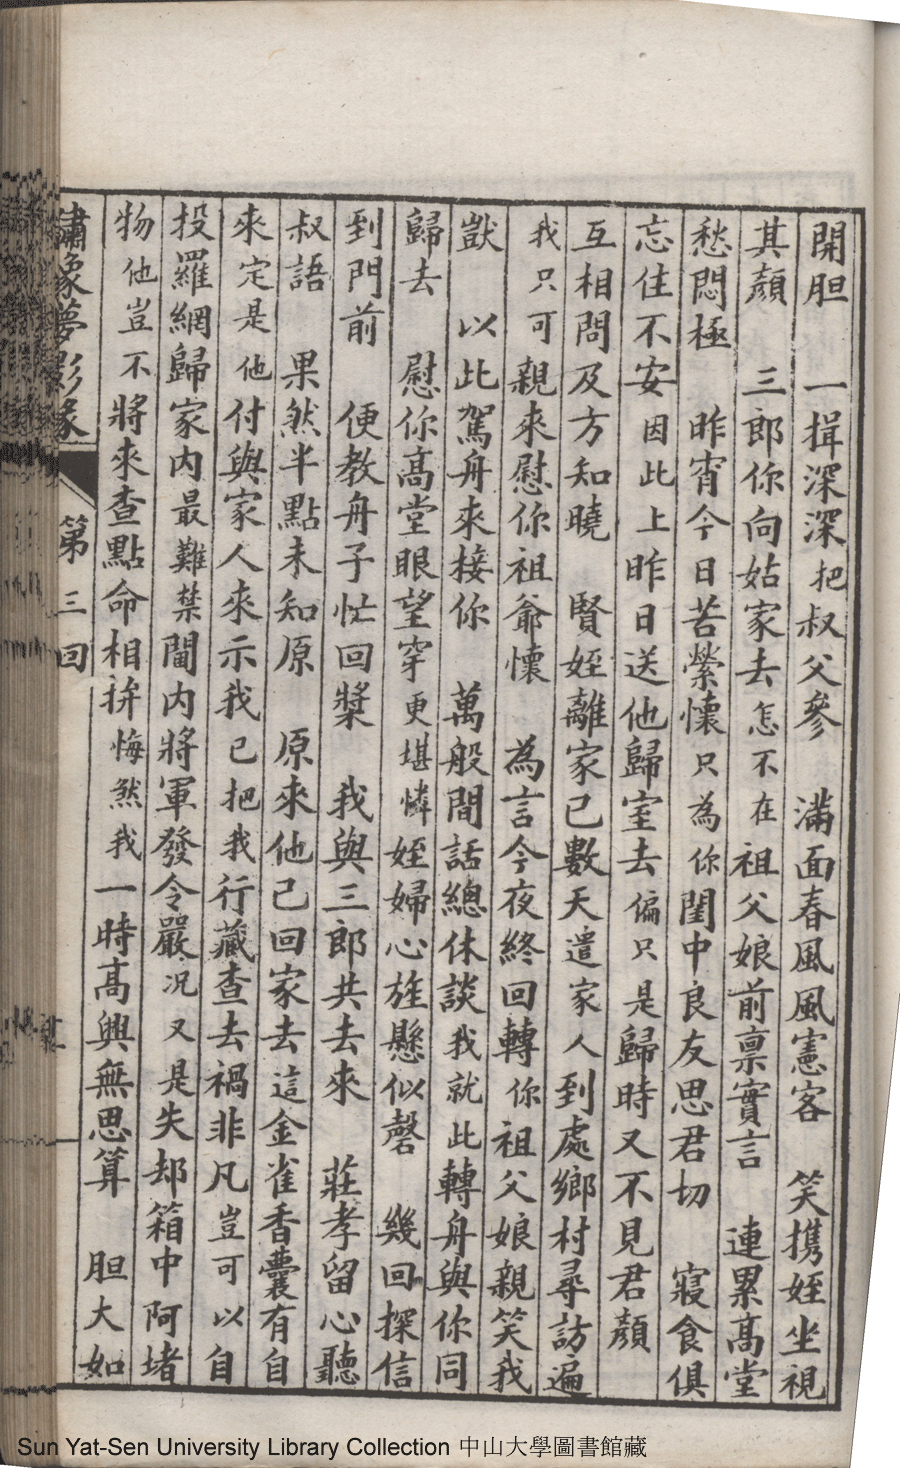 開胆　一揖深深把叔父參　滿面春風風憲客　笑携姪坐視
其顏　三郎你向姑家去怎不在祖父娘前禀實言　連累髙堂
愁悶極　昨宵今日苦縈懷只為你閨中良友思君切　寢食俱
忘住不安因此上昨日送他歸室去偏只是歸時又不見君顏
互相問及方知曉　賢姪離家已數天遣家人到處鄉村尋訪遍
我只可親來慰你祖爺懷　為言今夜終回轉你祖父娘親笑我
獃　以此駕舟來接你　萬般閒話總休談我就此轉舟與你同
歸去　慰你髙堂眼望穿更堪憐姪婦心旌懸似磬　幾回探信
到門前　便教舟子忙回槳　我與三郎共去來　莊孝留心聽
叔語　果然半點未知原　原來他已回家去這金雀香囊有自
來定是他付與家人來示我已把我行藏查去禍非凡豈可以自
投羅網歸家內最難禁閫內將軍發令嚴況又是失却箱中阿堵
物他豈不將來查點命相拚悔煞我一時髙興無思算　胆大如
繡像夢影緣　第三回
Sun Yat-Sen University Library Collection 中山大學圖書館藏